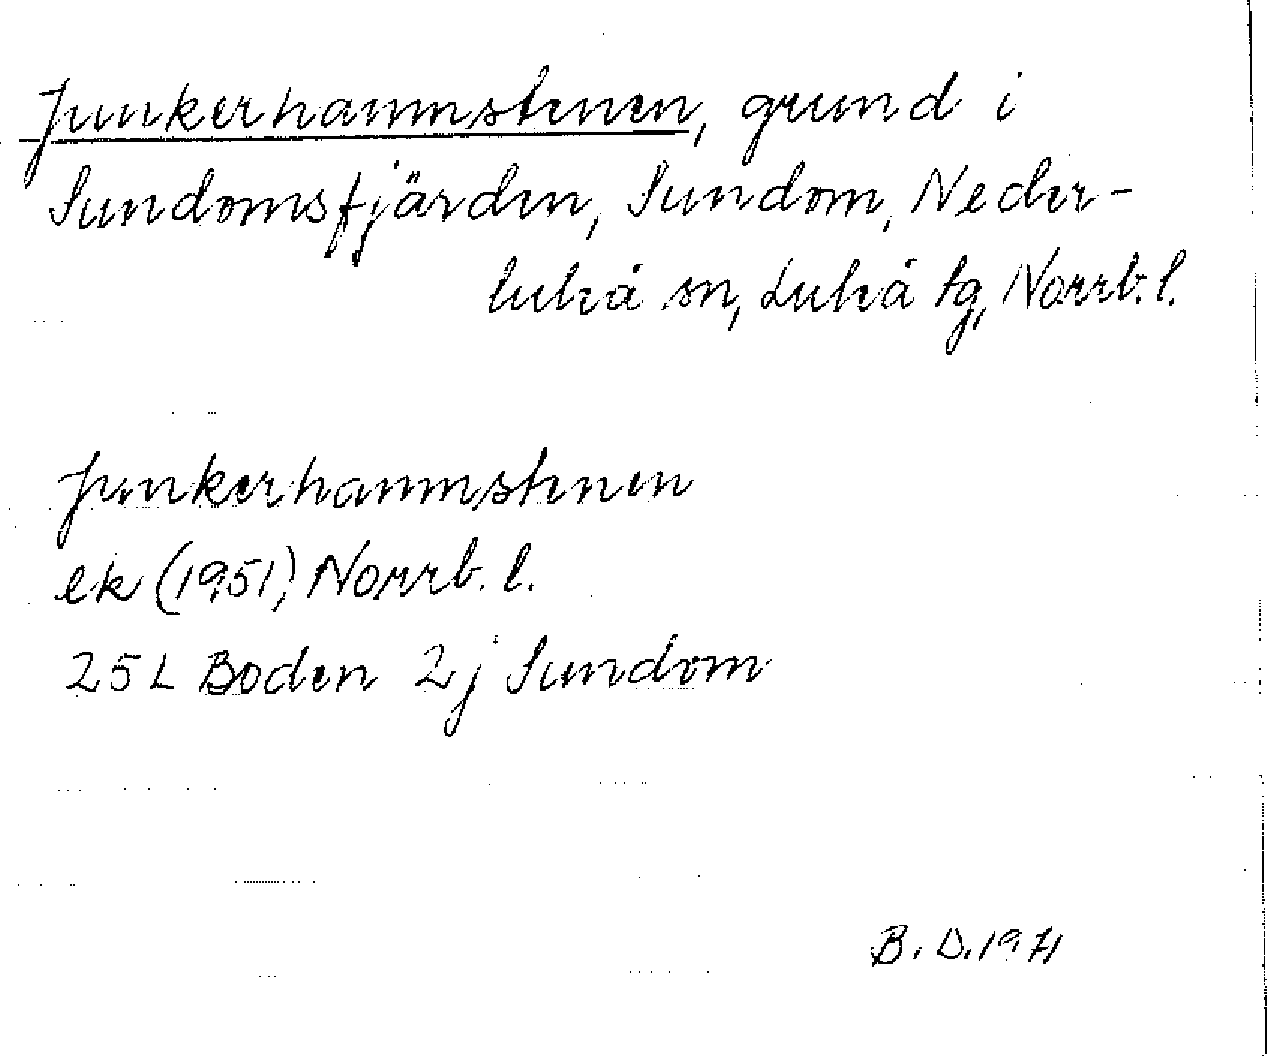 Junkerhamnstenen, grund i
Sundomsfjärden, Sundom, Neder-
luleå sn, Luleå tg, Norrb. l.
Junkerhamnstenen
ek (1951) Norrb. l.
25 L Boden 2j Sundom
B. D. 1971